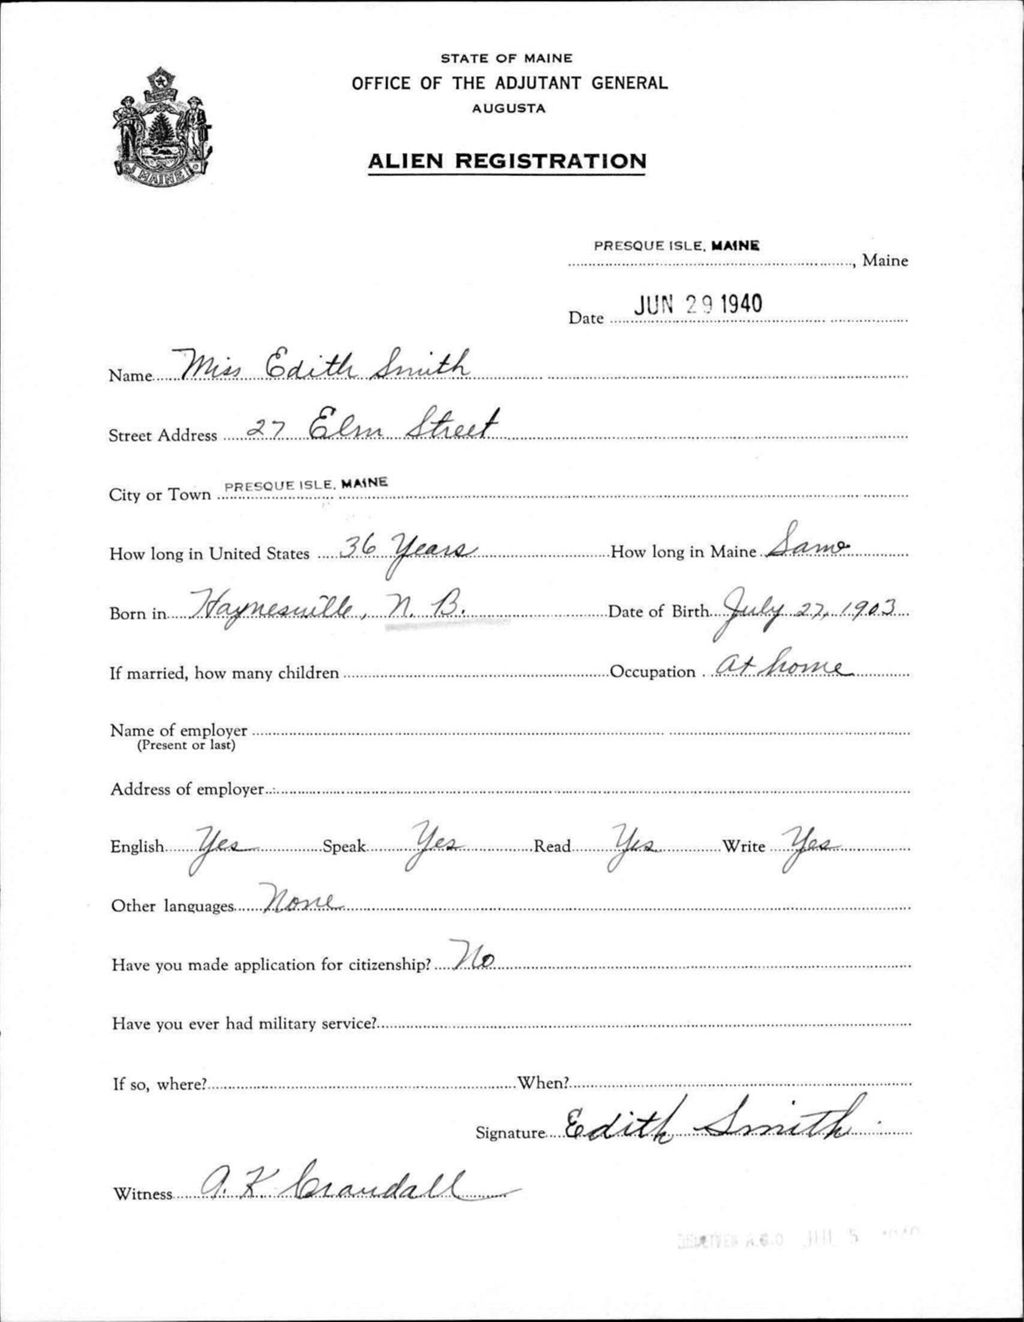 STATE OF MAINE
OFFICE OF THE ADJUTANT GENERAL
AUGUSTA
ALIEN REGISTRATION
MAINE
PRESQUE ISLE, MAINE
, Maine
Date JUN 29 1940
Name Miss Edith Smith
Street Address 27 Elm Street
City or Town PRESQUE ISLE, MAINE
How long in United States 36 Years How long in Maine Same
Born in Haynesville, N. B. Date of Birth July 27, 1903
If married, how many children Occupation At home
Name of employer
(Present or last)
Address of employer
English Yes Speak Yes Read Yes Write Yes
Other languages None
Have you made application for citizenship? No
Have you ever had military service?
If so, where? When?
Signature Edith Smith
Witness A. K. Crandall
A.G.O JUL 5 1940